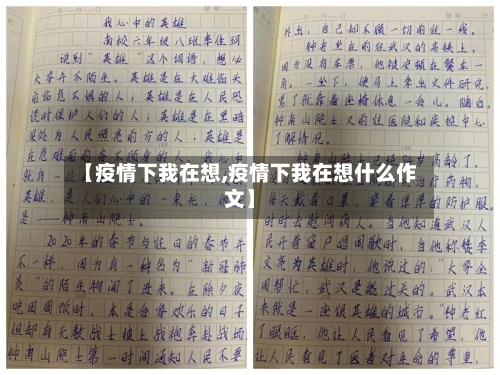 我心中的英雄
南校六年级八班李佳珂
说到“英雄”这个词语,想必
大家并不陌生。英雄是在大难临头
前临危不惧的人;英雄是在人民恐
慌时保护人们的人;英雄是在黑暗
深处为人民照亮前方的人;英雄是
在危难面前
就自
英雄,是人们心中的一束光,他
是——钟南山院士。
2020年的春节与往日的春节并
不一样,因为有一种名为“新冠肺
炎”的陌生物闯了进来。在除夕夜
吃团圆饭时,本是合家欢乐的日子
但却有无数战士披上战袍奔赴战场
钟南山院士第一时间通知人民不要
外出,自己却不顾一切前往一线。
钟老坐在前往武汉的高铁上,
因为没有车票,他被安顿在餐车一
角。一坐下,便马上拿出文件研究,
累了就靠着座椅休息一会儿。随后,
钟南山院士又前往医院和疾控中心
了解情况。
高龄了,
治疗药物,
每天戴着口罩,穿着厚厚的防护服,
时时去慰问病人。当他知道武汉人
民开着窗户唱国歌时,当他称赞李
文亮为英雄时,他说过的:“大家全
国帮忙,武汉是能过关的。武汉本
来就是一座很英雄的城市。”钟老红
了眼眶,他让人民看见了希望,他
让人民看见了医者对生命的尊重,
【疫情下我在想,疫情下我在想什么作
文】